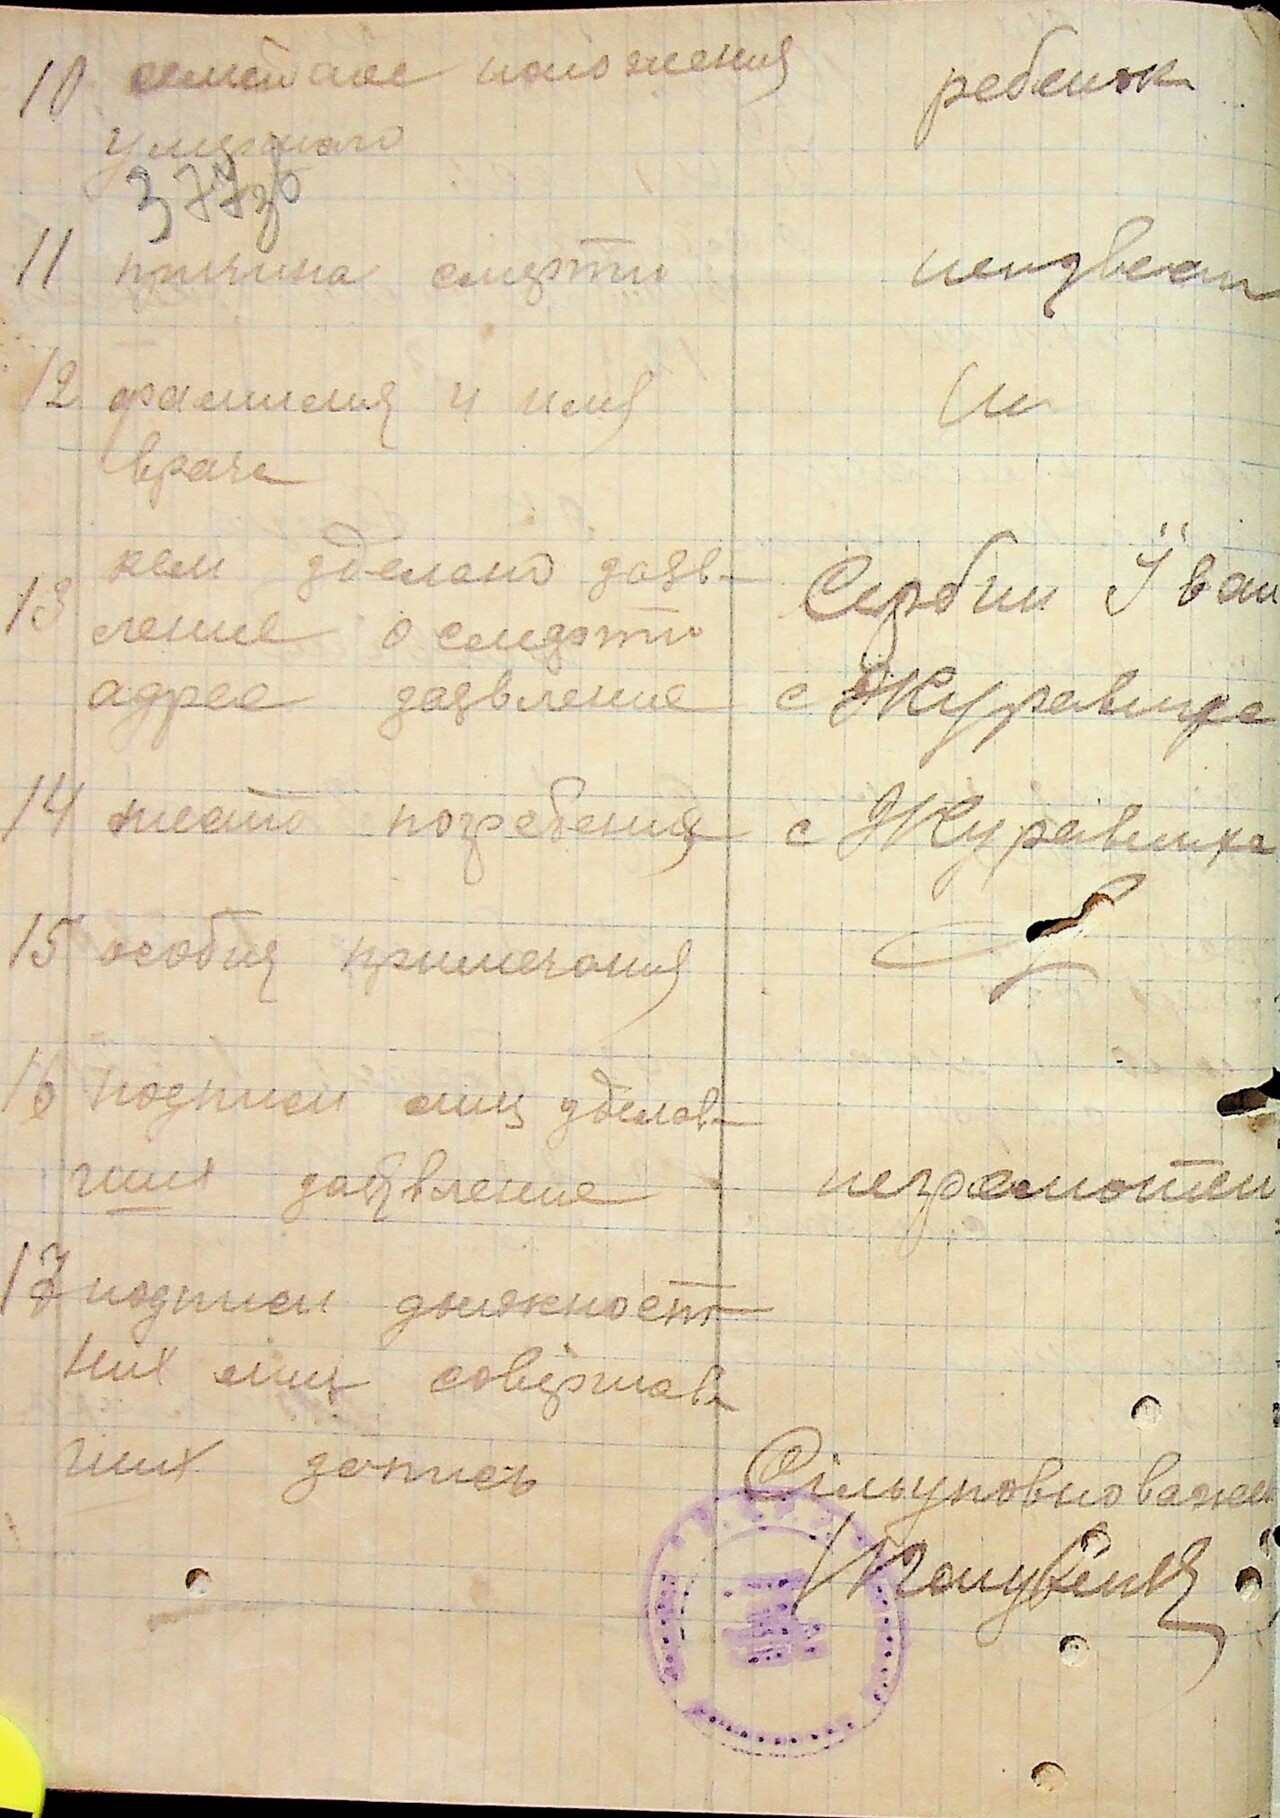 10 семейное положения ребенок
умерш​ого
11 причина смерти неизвесн
12 фамилия и имя
врача
кем зделано заяв-
13 Сербин Іван
ление о смерти
адрес заявление с Журавиха
14 место погребения с Журавиха
15 особия примечания
16 подписи лиц зделав-
ших заявление неграмотен
17 подписи должност-
них лиц совершав-
ших запись Сільуповноважен